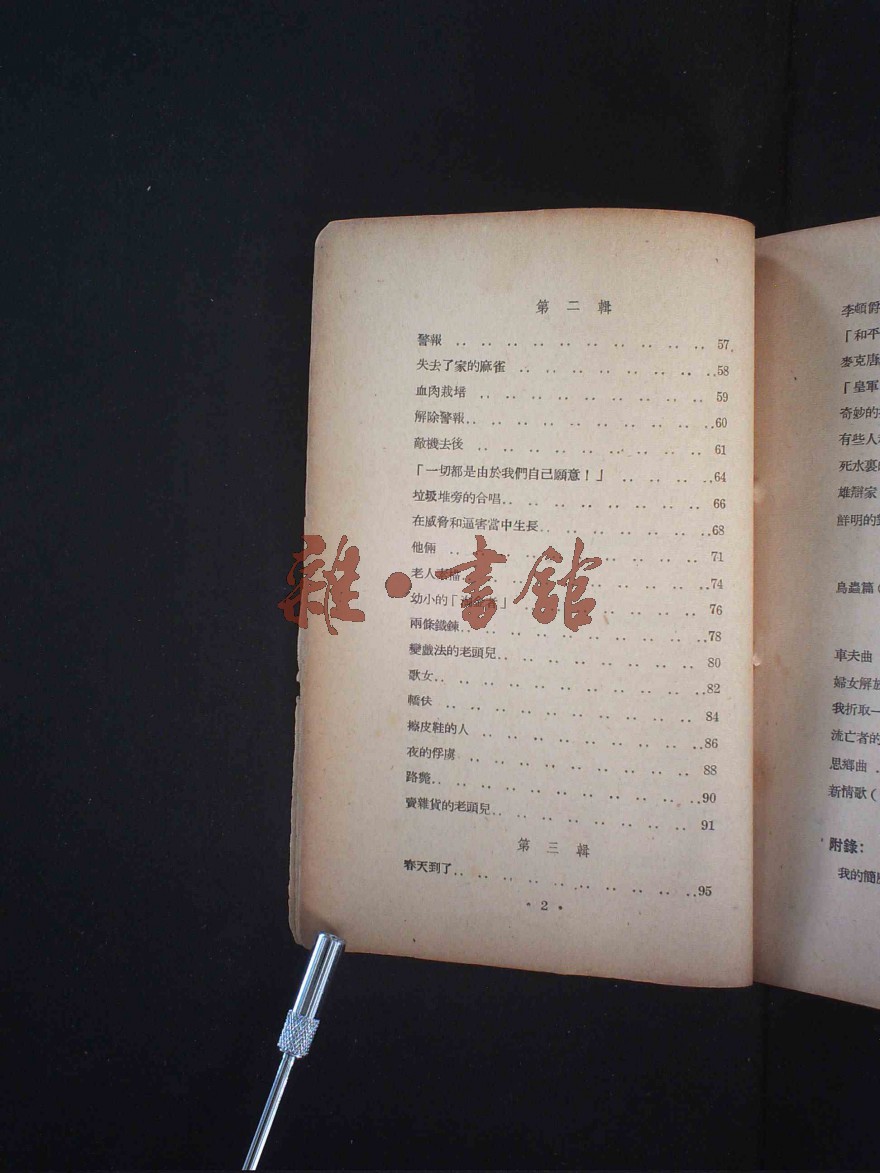 第二輯
警報 .. .. .. .. .. .. .. .. .. .. 57
失去了家的麻雀 .. .. .. .. .. .. .. ..58
血肉栽培 .. .. .. .. .. .. .. .. .. 59
解除警報.. .. .. .. .. .. .. .. .. ..60
敵機去後 .. .. .. .. .. .. .. .. .. 61
「一切都是由於我們自己願意！」 .. .. .. ..64
垃圾堆旁的合唱.. .. .. .. .. .. .. .. 66
在威脅和逼害當中生長.. .. .. .. .. .. ..68
他倆 .. .. .. .. .. .. .. .. .. .. 71
老人 .. .. .. .. .. .. .. .. 74
幼小的「淘金者」 .. .. .. .. .. .. .. 76
兩條鐵鍊.. .. .. .. .. .. .. .. .. .. 78
變戲法的老頭兒.. .. .. .. .. .. .. .. 80
歌女.. .. .. .. .. .. .. .. .. .. ..82
轎伕 .. .. .. .. .. .. .. .. .. .. 84
擦皮鞋的人 .. .. .. .. .. .. .. .. ..86
夜的俘虜 .. .. .. .. .. .. .. .. .. 88
路斃.. .. .. .. .. .. .. .. .. .. ..90
賣雜貨的老頭兒.. .. .. .. .. .. .. .. 91
第三輯
春天到了.. .. .. .. .. .. .. .. .. ..95
• 2 •
李頓爵
「和平
麥克唐
「皇軍
奇妙的
有些人
死水裏
雄辯家
鮮明的
鳥蟲篇（
車夫曲
婦女解放
我折取一
流亡者的
思鄉曲 .
新情歌（
附錄：
我的簡
雜·書館